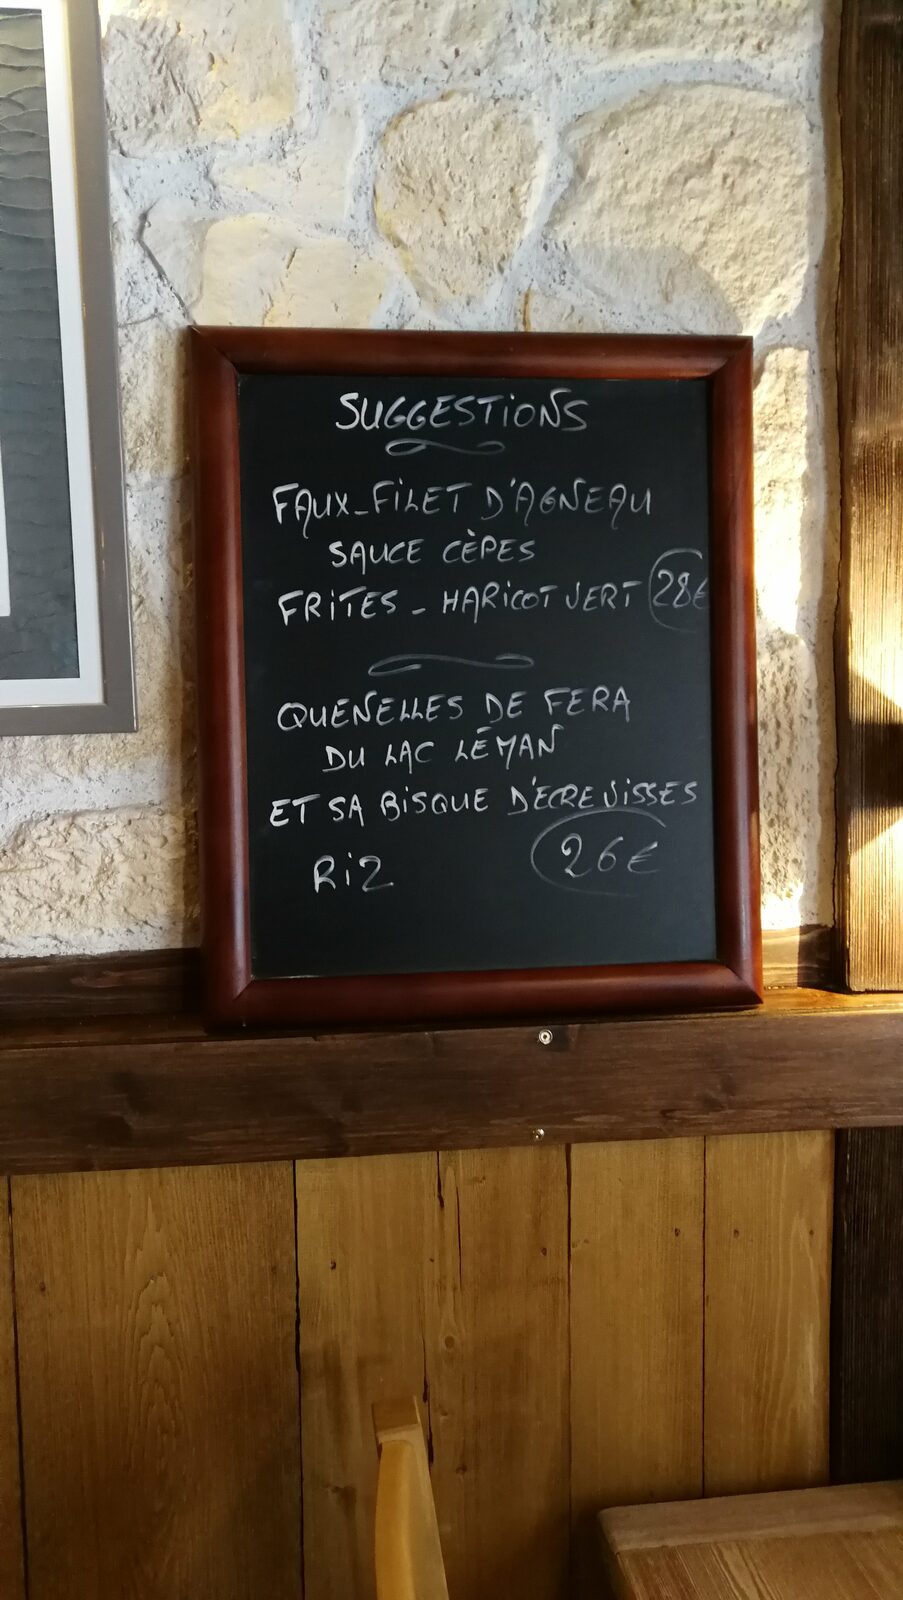 SUGGESTIONS
FAUX-FILET D'AGNEAU
SAUCE CÈPES
FRITES - HARICOT VERT 28€
QUENELLES DE FERA
DU LAC LÉMAN
ET SA BISQUE D'ECREVISSES
RIZ 26€